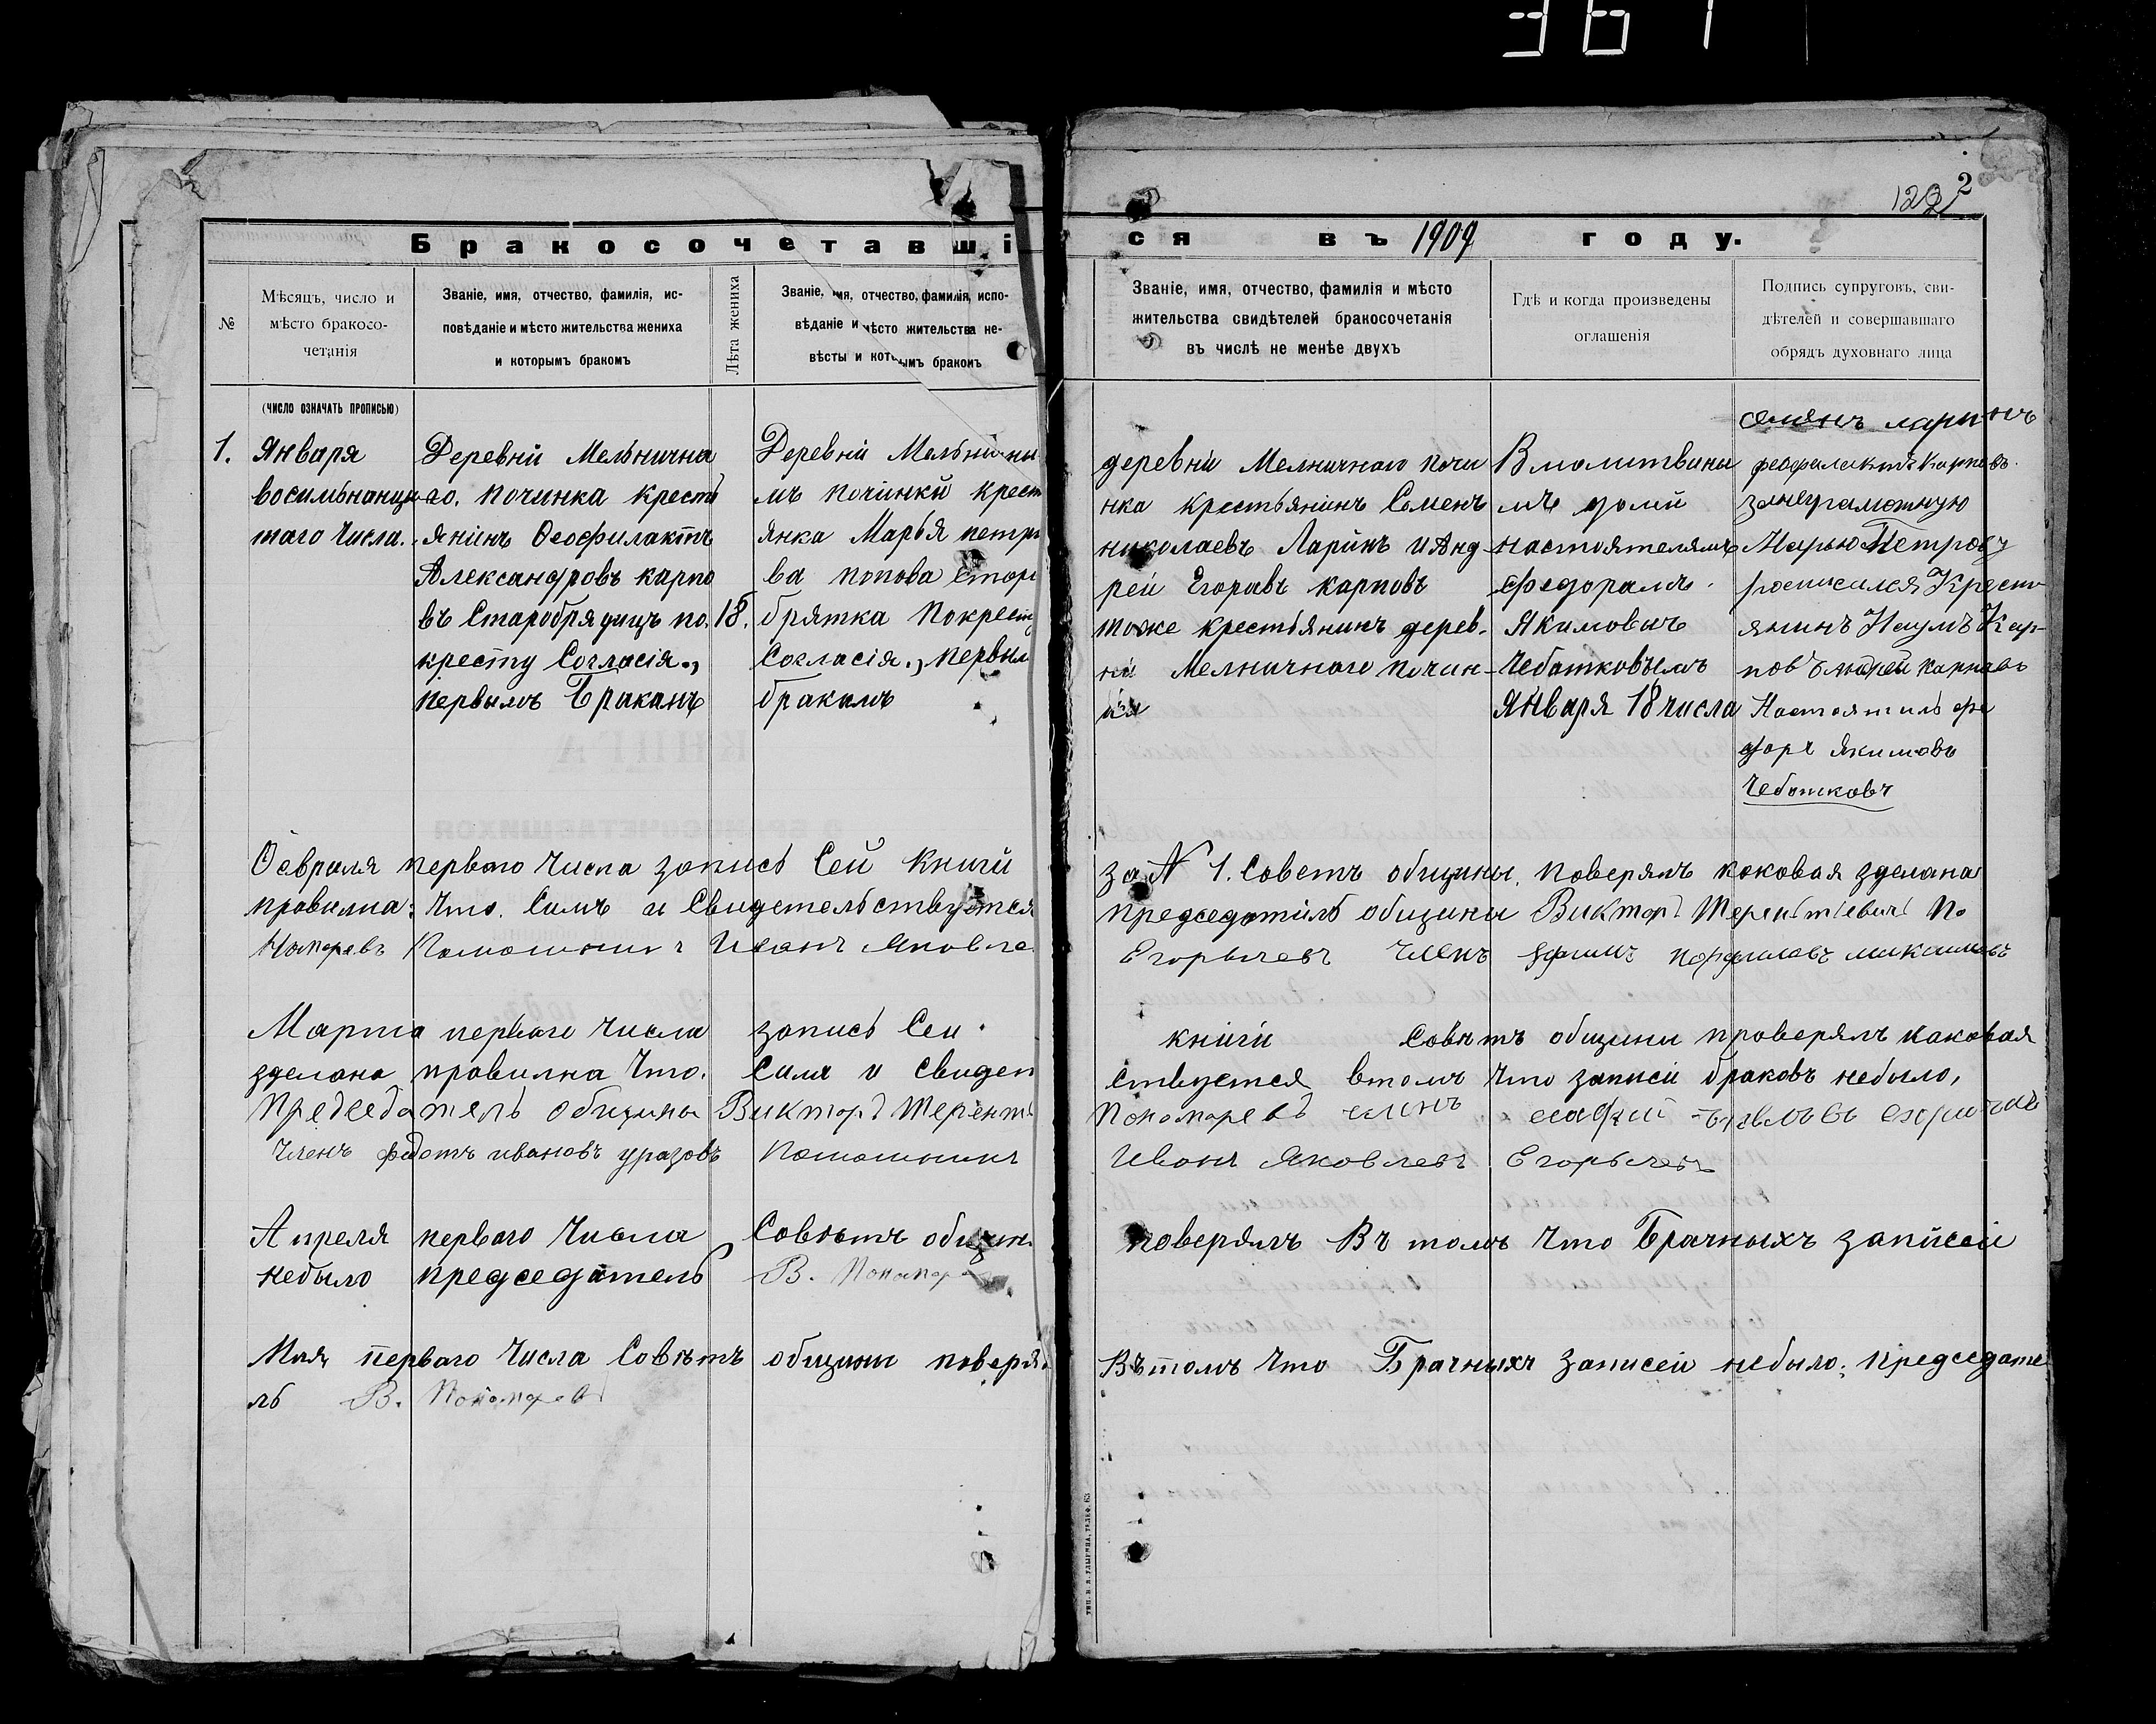 367
2
Бракосочетавшіся въ 1909 году.
№
Мѣсяцъ, число и
мѣсто бракосо-
четанія
Званіе, имя, отчество, фамилія, ис-
повѣданіе и мѣсто жительства жениха
и которымъ бракомъ
Лѣта жениха
Званіе, имя, отчество, фамилія, испо-
вѣданіе и мѣсто жительства не-
вѣсты и которымъ бракомъ
Званіе, имя, отчество, фамилія и мѣсто
жительства свидѣтелей бракосочетанія
въ числѣ не менѣе двухъ
Гдѣ и когда произведены
оглашенія
Подпись супруговъ, сви-
дѣтелей и совершавшаго
обрядъ духовнаго лица
(число означать прописью)
1.
Января
восимьнанца
таго Числа.
Деревни Мельнична
го. починка кресть
янинъ Ѳеофилактъ
Александровъ карпо
въ Старобрядицъ по.
кресту Согласія.,
первымъ Браканъ
18.
Деревни Мельничны
мъ починки крест
янка Марья петро
ва попова стор
брятка Покресту
Согласія., первым
бракамъ
деревни Мелничнаго почи
нка крестьянинъ Семенъ
николаевъ Ларинъ и Анд
рей Егоравъ карповъ
тоже крестьянинъ дерев.
ни Мелничнаго почин-
ка
В молитвины
мъ доми
настоятелямъ
Федорамъ
Якимович
Чеботковымъ
Января 18 числа
семенъ ларинъ
феофилактъ Карповъ.
занеграмотную
Марью Петрову
росписился Крести
янинъ Наумъ Кар-
повъ Андрей Карповъ
Настоятиль фе
доръ якимовъ
Чеботковъ
Ѳевраля первого Числа запись Сей Книги за № 1. Советъ общины. поверялъ коковая зделана
правилна: Что. Симъ и Свидетельствуется председатиль общины Виктор Терентіевичь По
номоревъ Помошник Иван Яковле Егорычевъ Членъ Ефимъ порфиловъ максимовъ
Марта перваго Числа запись Сеи книги Совѣтъ общины проверялъ каковая
зделана правилна Что. Симъ и Свидетельствуется втомъ Что записи браковъ небыло,
Председатель общины Виктор Терентьев Пономорев членъ
Членъ федотъ ивановъ уразовъ Помошник Иван Яковлевъ Егорычевъ
Апреля перваго Числа Совѣтъ общин. поверялъ Въ томъ Что Брачныхъ записеи
небыло председатель В. Пономор
Мая, перваго Числа Совѣтъ общины поверял Вътомъ Что Брачныхъ записеи небыло; председате
ль В. Пономорев